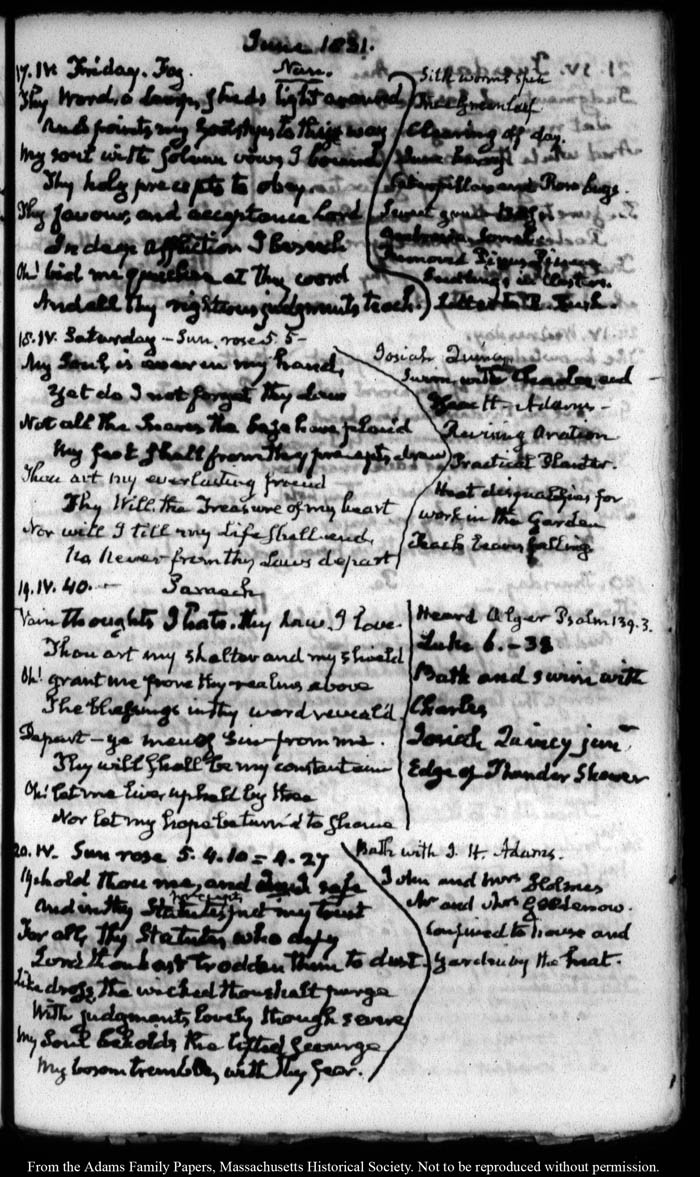 June 1831.
17. IV. Friday. Fog.
Nun.
Thy Word, a lamp, sheds light around
And points my footsteps to thy way
My soul with solemn vows I bound
Thy holy precepts to obey
Thy favour, and acceptance Lord
In deep affliction I beseech
Oh! bid me quicken at thy word
And all thy righteous judgments teach.
Silk worms spin
Tree Greenleaf
Clearing of day.
Caterpillars and Rose bugs.
Seedlings in Cluster.
Letter to R. Rush.
18. IV. Saturday — Sun, rose 5. 5 —
My Soul, is ever in my hand,
Yet do I not forget thy Law
Not all the Snares the base have plaid
My feet shall from thy precepts, draw
Thou art my everlasting friend
Thy Will, the Treasure of my heart
Nor will I till my Life shall end,
No Never from thy Laws depart
Josiah Quincy
Swim with Charles and
Isaac H. Adams —
Revising Oration
Practical Planter.
Heat disqualifies for
work in the Garden
Peach leaves falling
19. IV. 40. — Samech
Vain thoughts I hate, thy Law, I love.
Thou art my shelter and my shield
Oh! grant me from thy realms above
The blessings in thy word reveal'd
Depart — ye men of Sin from me.
Thy will shall be my constant aim
Oh! let me live upheld by thee
Nor let my hope be turn'd to shame
Heard Alger Psalm 139. 3.
Luke 6. - 38
Bath and swim with
Charles
Josiah Quincy junr
Edge of Thunder Shower
20. IV. Sun rose 5. 4. 10 = 4. 27
Uphold thou me, and I safe
And in thy Statutes put my trust
For all, thy Statutes, who defy
Lord thou hast trodden them to dust.
Like dross, the wicked thou shalt purge
With judgments, lovely though severe
My Soul beholds the lifted scourge
My bosom trembles, with thy fear.
Bath with I. H. Adams.
John and Mrs Holmes
Mr and Mrs Goodenow.
Confined to house and
Garden by the heat.
From the Adams Family Papers, Massachusetts Historical Society. Not to be reproduced without permission.